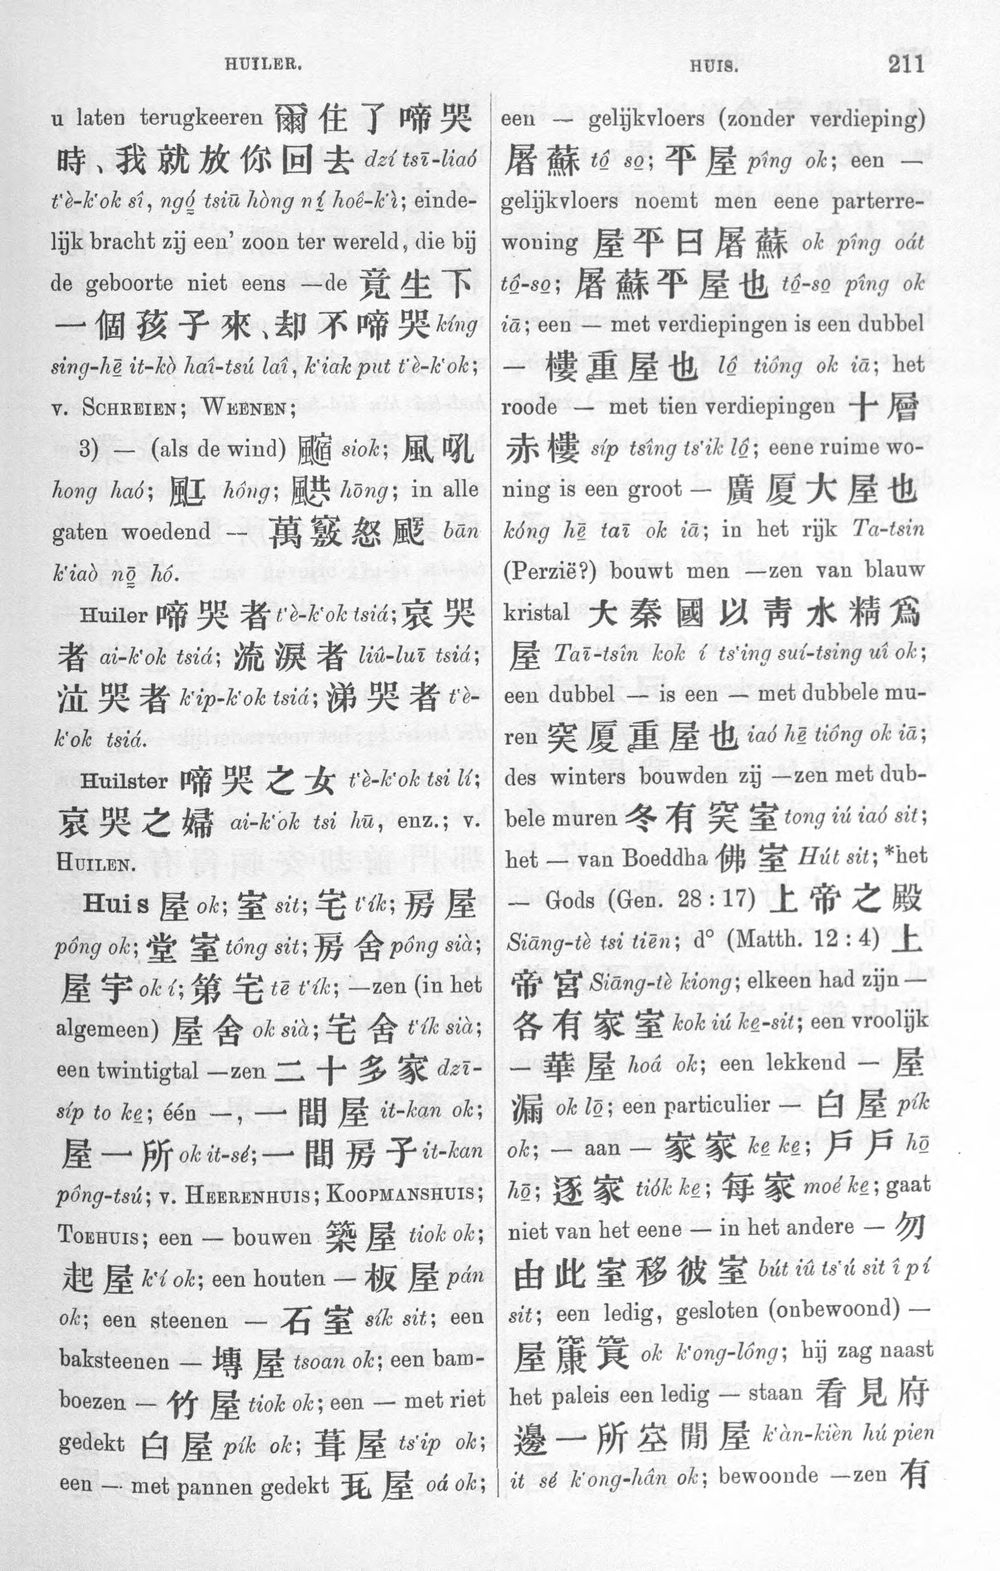 HUILER.
HUIS.
211
u laten terugkeeren 爾住了啼哭
時、我就放你回去 dzí tsī-liaó
t'è-k'ok sî, ngó tsiū hòng ní hoê-k'ì; einde-
lijk bracht zij een' zoon ter wereld, die bij
de geboorte niet eens —de 竟生下
一個孩子來、却不啼哭 kíng
sing-hē it-kò haî-tsú laî, k'iak put t'è-k'ok;
v. SCHREIEN; WEENEN;
3) — (als de wind) 飍 siok; 風吼
hong haó; 䬝 hông; hōng; in alle
gaten woedend — 萬竅怒 bān
k'iaò nō hó.
Huiler 啼哭者 t'è-k'ok tsiá; 哀哭
者 ai-k'ok tsiá; 流淚者 liû-luī tsiá;
泣哭者 k'ip-k'ok tsiá; 涕哭者 t'è-
k'ok tsiá.
Huilster 啼哭之女 t'è-k'ok tsi lí;
哀哭之婦 ai-k'ok tsi hū, enz.; v.
HUILEN.
Huis 屋 ok; 室 sit; 宅 t'ík; 房屋
pông ok; 堂室 tông sit; 房舍 pông sià;
屋宇 ok í; 第宅 tē t'ík; —zen (in het
algemeen) 屋舍 ok sià; 宅舍 t'ík sià;
een twintigtal —zen 二十多家 dzī-
síp to ke; één —, 一間屋 it-kan ok;
屋一所 ok it-sé; 一間房子 it-kan
pông-tsú; v. HEERENHUIS; KOOPMANSHUIS;
TOEHUIS; een — bouwen 築屋 tiok ok;
起屋 k'í ok; een houten — 板屋 pán
ok; een steenen — 石室 sík sit; een
baksteenen — 塼屋 tsoan ok; een bam-
boezen — 竹屋 tiok ok; een — met riet
gedekt 白屋 pík ok; 葺屋 ts'ip ok;
een — met pannen gedekt 瓦屋 oá ok;
een — gelijkvloers (zonder verdieping)
屠蘇 tô so; 平屋 pîng ok; een —
gelijkvloers noemt men eene parterre-
woning 屋平曰屠蘇 ok pîng oát
tô-so; 屠蘇平屋也 tô-so pîng ok
iā; een — met verdiepingen is een dubbel
— 樓重屋也 lô tiông ok iā; het
roode — met tien verdiepingen 十層
赤樓 síp tsîng ts'ik lô; eene ruime wo-
ning is een groot — 廣厦大屋也
kóng hē taī ok iā; in het rijk Ta-tsin
(Perzië?) bouwt men —zen van blauw
kristal 大秦國以靑水精爲
屋 Taī-tsîn kok í ts'ing suí-tsing uî ok;
een dubbel — is een — met dubbele mu-
ren 突厦重屋也 iaó hē tiông ok iā;
des winters bouwden zij —zen met dub-
bele muren 冬有突室 tong iú iaó sit;
het — van Boeddha 佛室 Hút sit; *het
— Gods (Gen. 28 : 17) 上帝之殿
Siāng-tè tsi tiēn; d° (Matth. 12 : 4) 上
帝宮 Siāng-tè kiong; elkeen had zijn —
各有家室 kok iú ke-sit; een vroolijk
— 華屋 hoâ ok; een lekkend — 屋
漏 ok lō; een particulier — 白屋 pík
ok; — aan — 家家 ke ke; 戶戶 hō
hō; 逐家 tiók ke; 每家 moé ke; gaat
niet van het eene — in het andere — 勿
由此室移彼室 bút iû ts'ú sit î pí
sit; een ledig, gesloten (onbewoond) —
屋 ok k'ong-lông; hij zag naast
het paleis een ledig — staan 看見府
邊一所空閒屋 k'àn-kièn hú pien
it sé k'ong-hân ok; bewoonde —zen 有